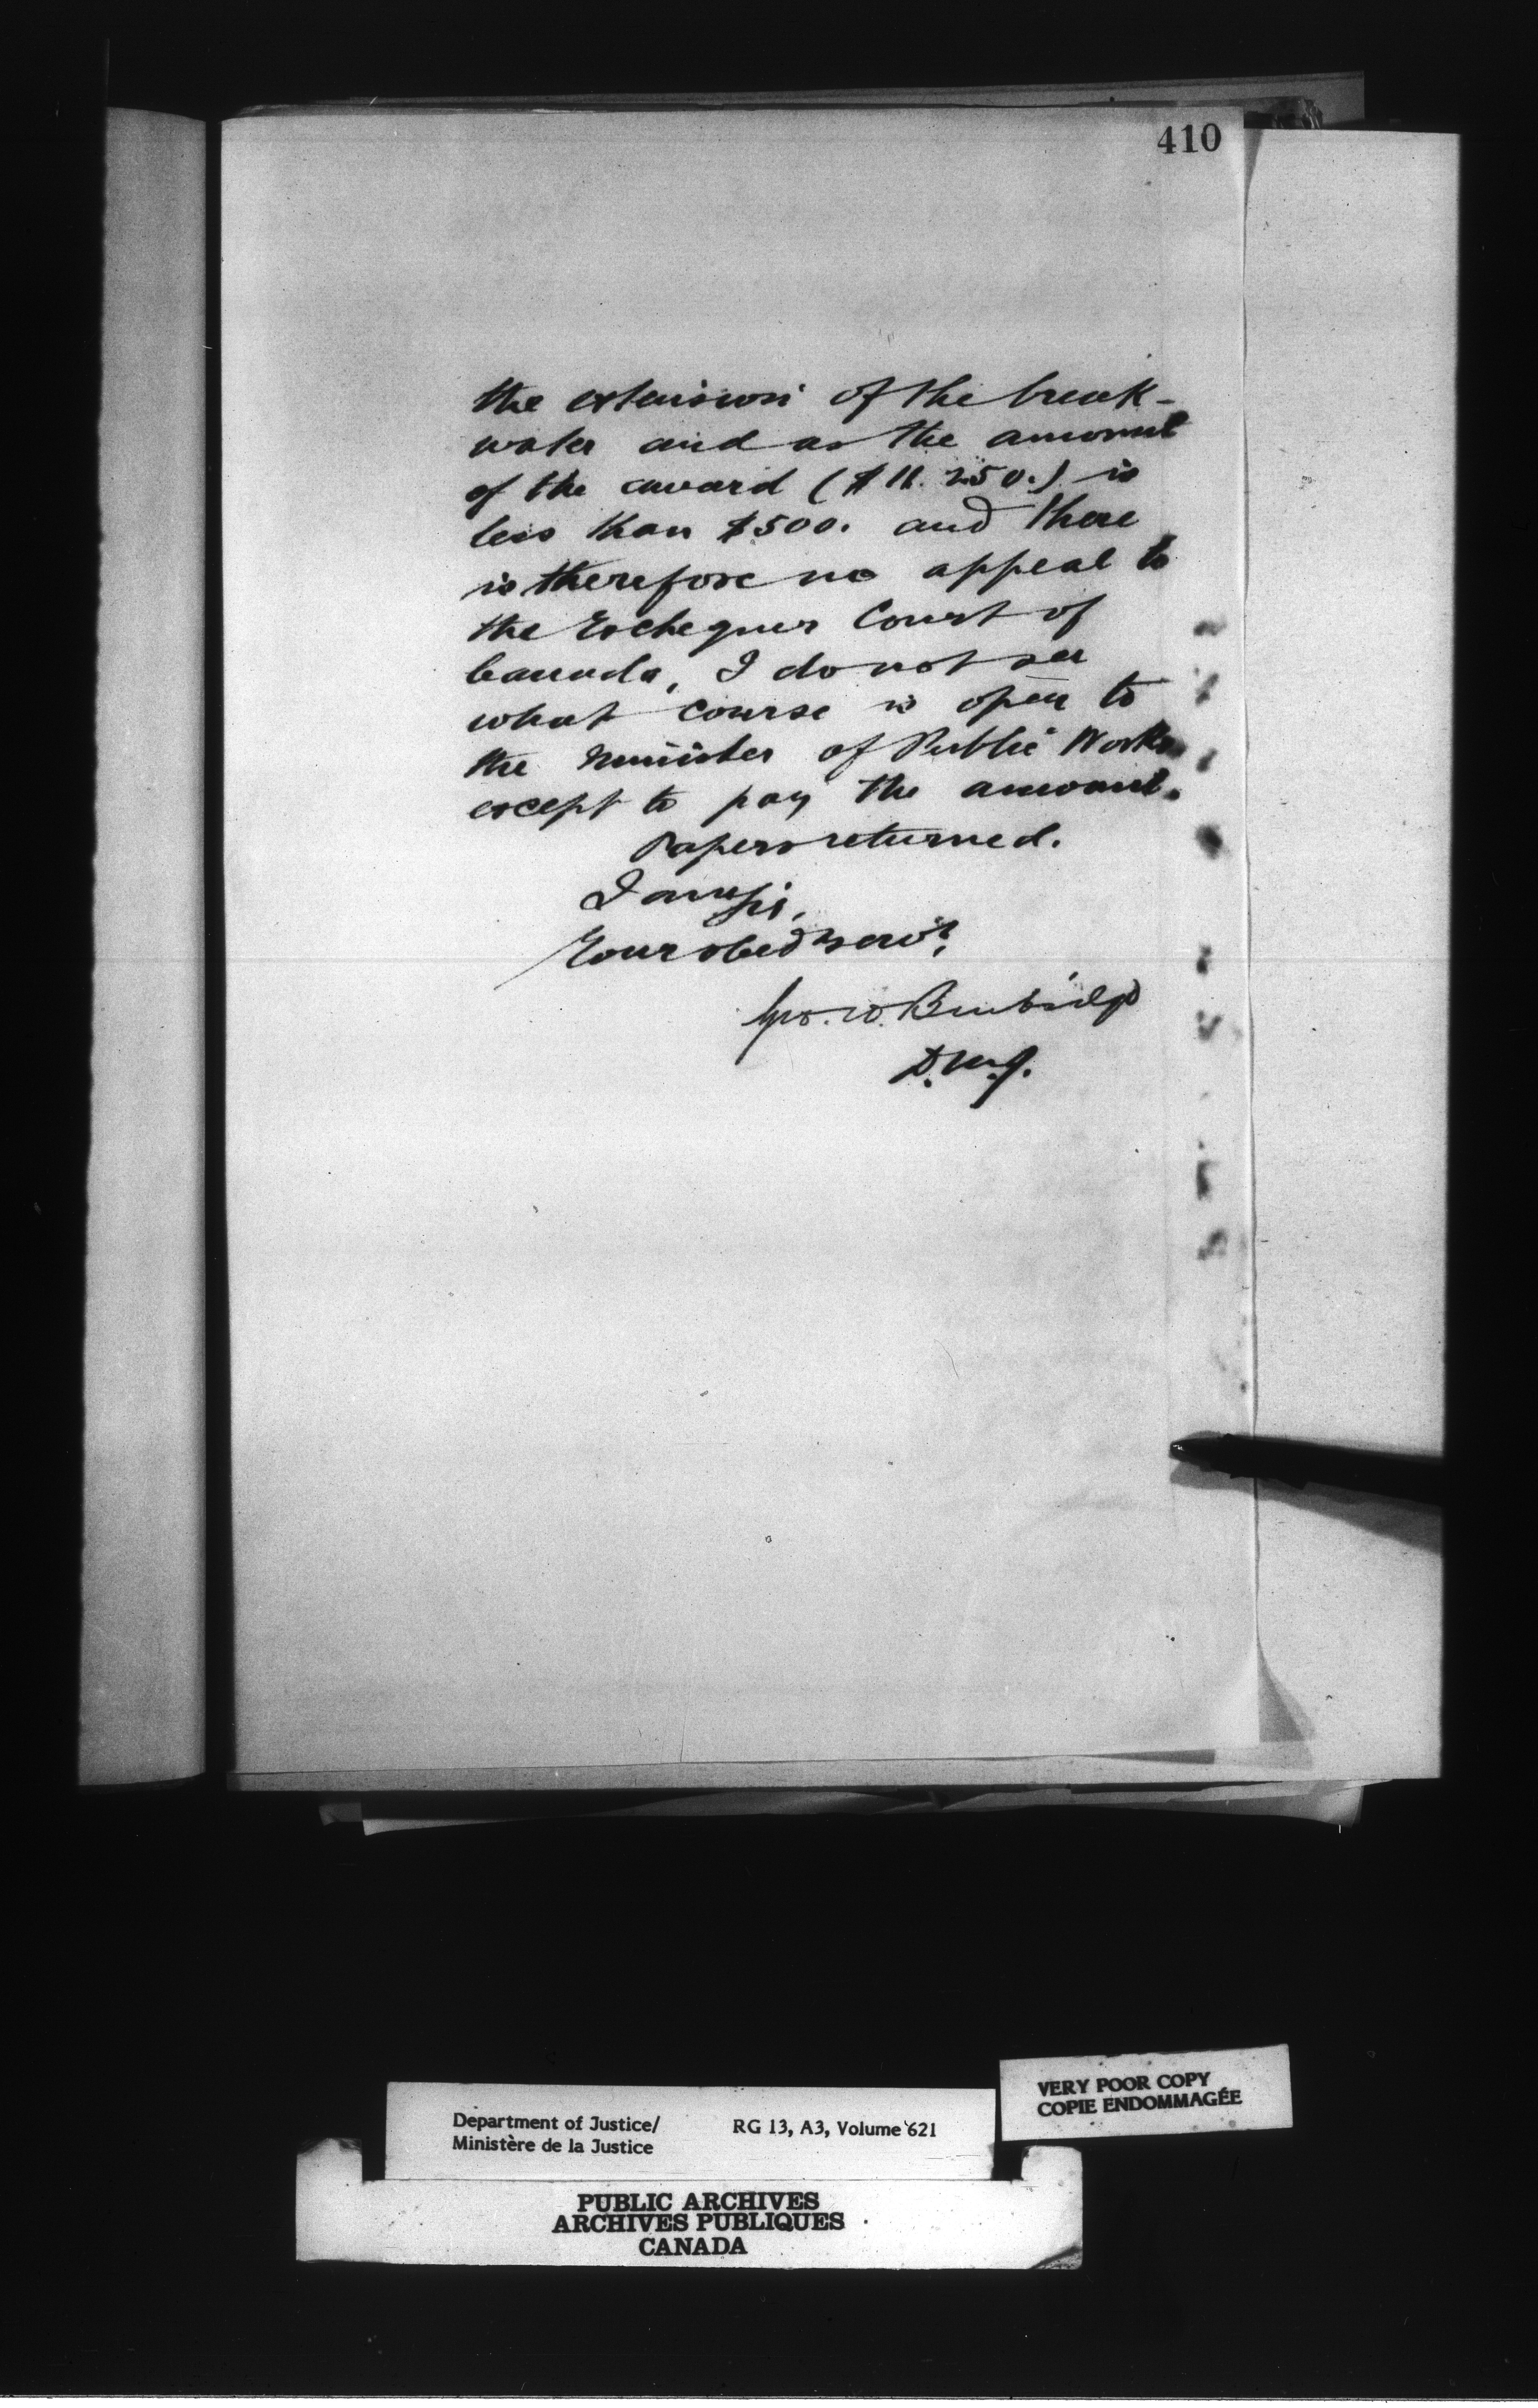 410
the extension of the break-
water and as the amount
of the award ($ 250.) is
less than $500. and there
is therefore no appeal to
the Exchequer Court of
Canada, I do not see
what course is open to
the Minister of Public Works
except to pay the amount.
Papers returned.
I am Sir,
Your obedt servt,
Geo. W. Burbidge
D.M.J.
Department of Justice/
Ministère de la Justice
RG 13, A3, Volume 621
VERY POOR COPY
COPIE ENDOMMAGÉE
PUBLIC ARCHIVES
ARCHIVES PUBLIQUES
CANADA